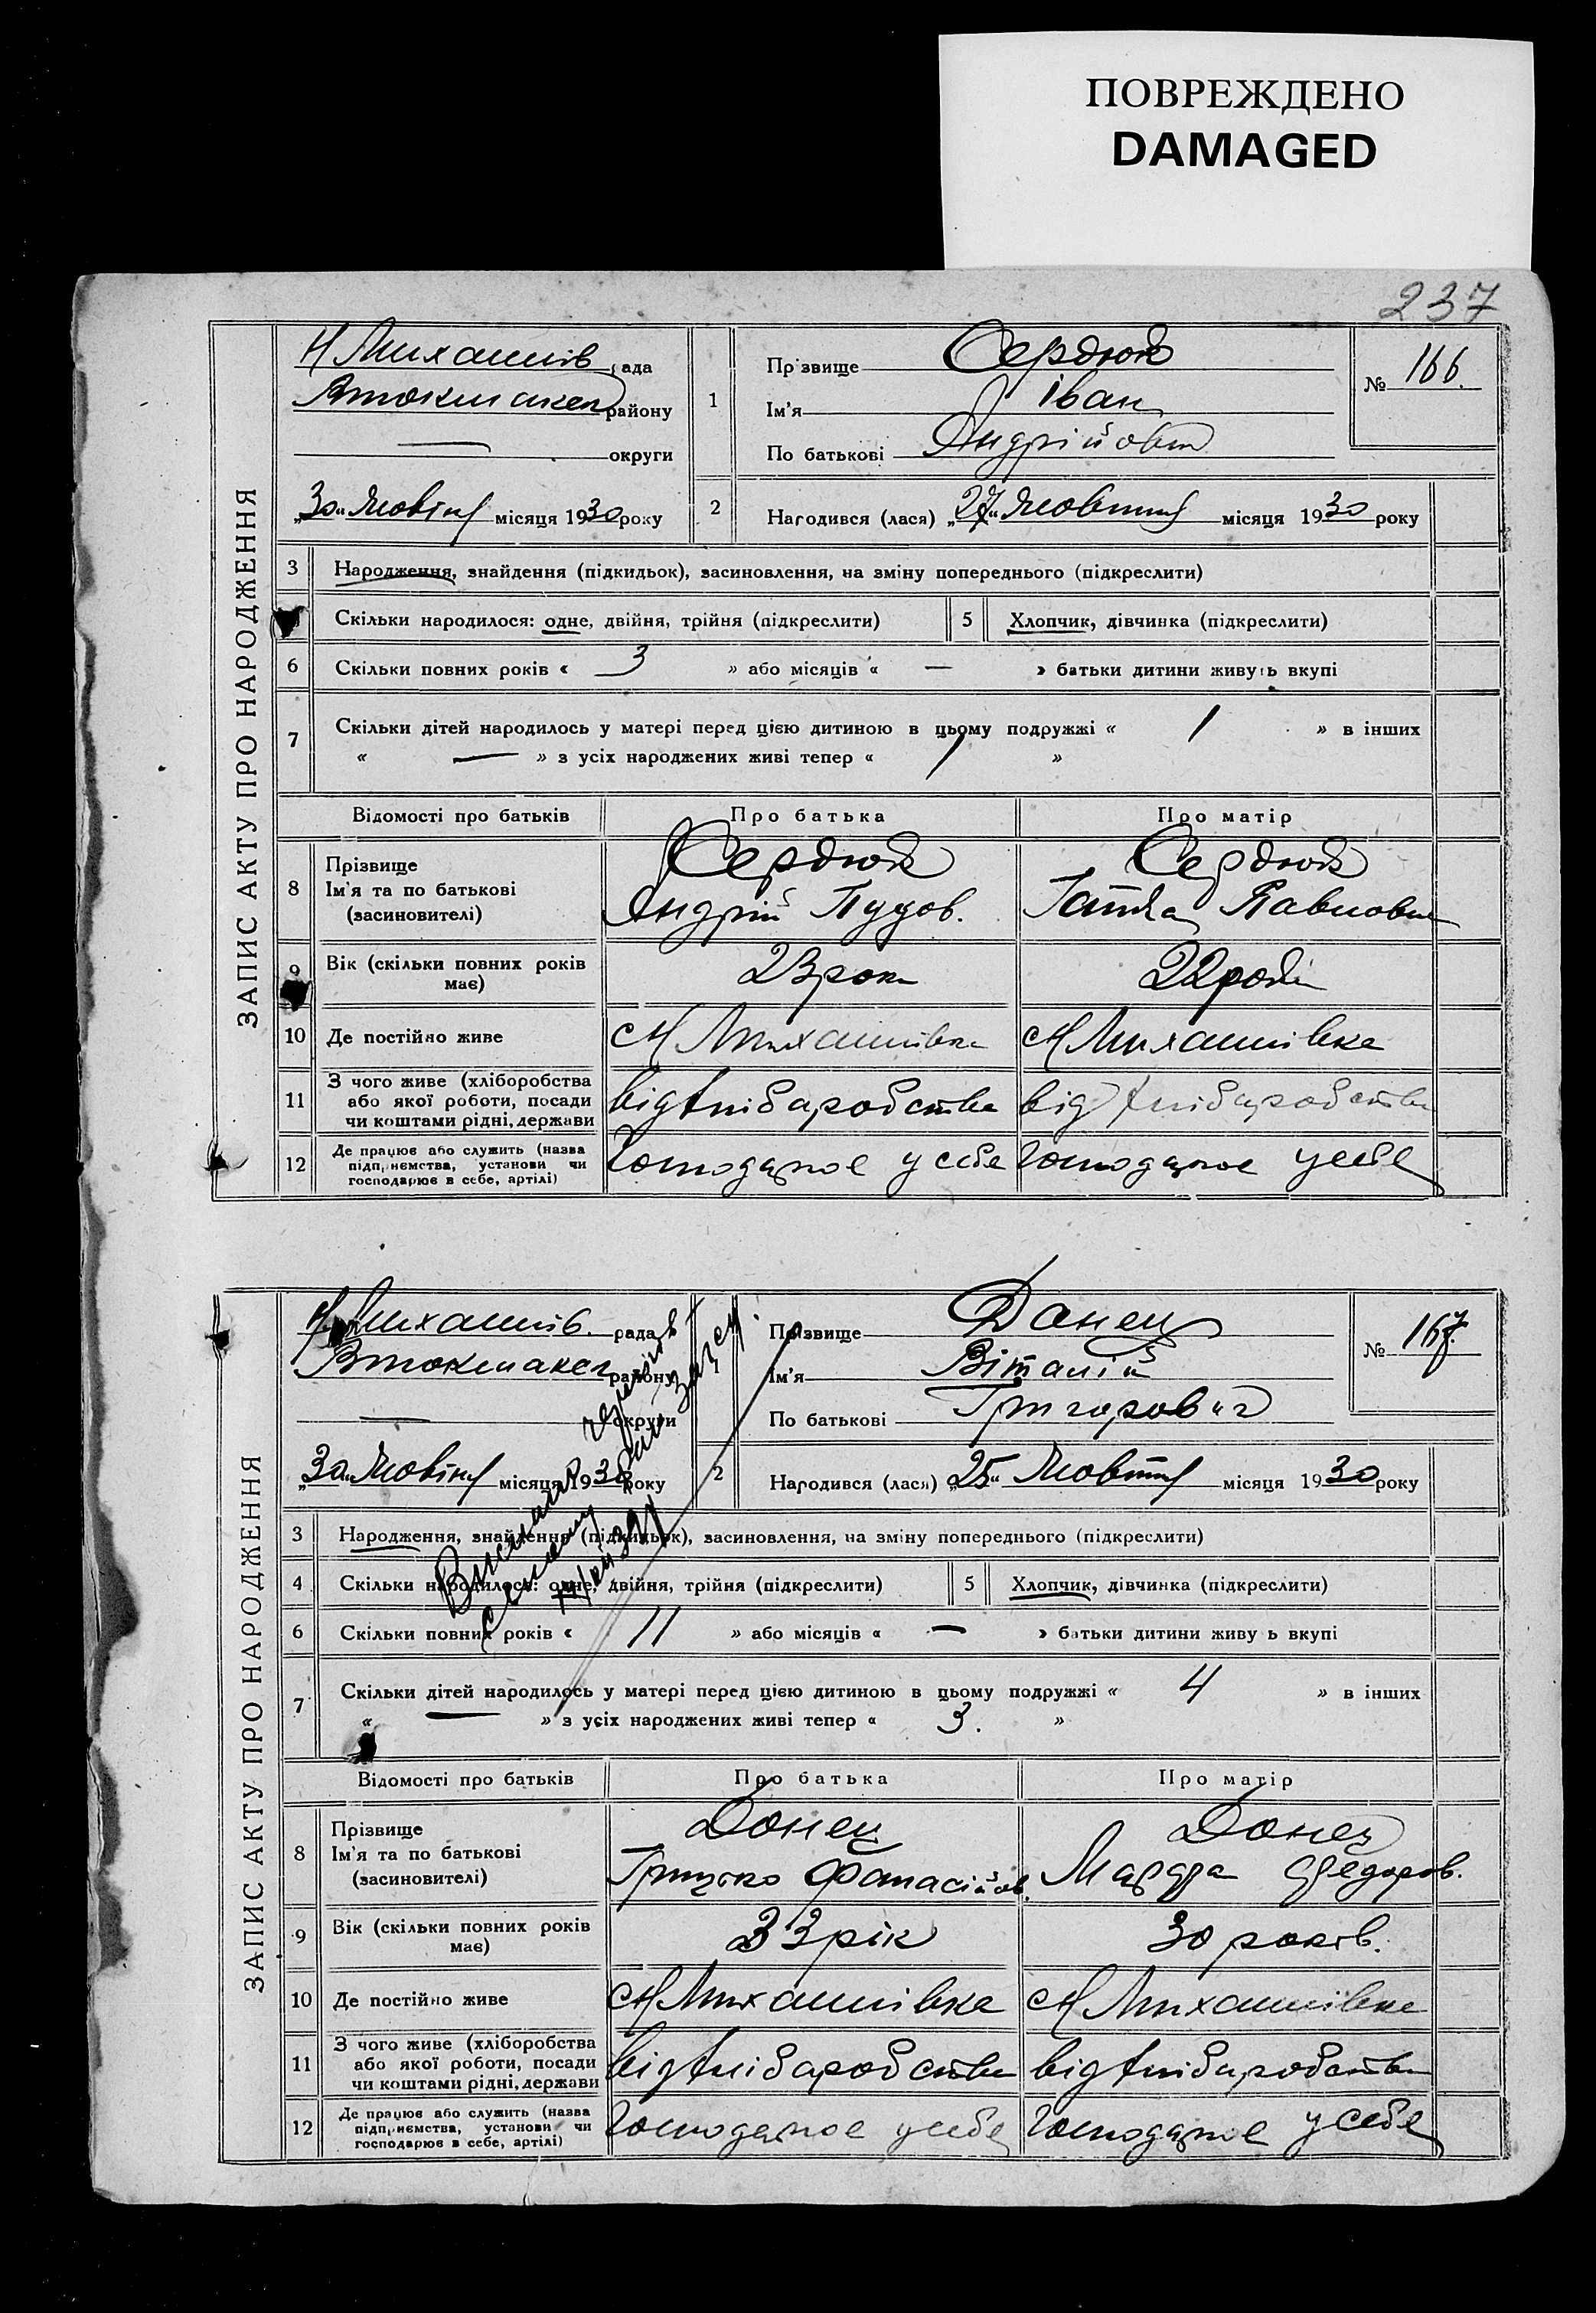 ПОВРЕЖДЕНО
DAMAGED
237
ЗАПИС АКТУ ПРО НАРОДЖЕННЯ
Н Михайлів рада
Втокмакск району
— округи
„30“ Жовтня місяця 1930 року
1
Прізвище Сердюк
Ім'я Іван
По батькові Андрійович
№ 166.
2
Народився (лася) „27“ Жовтня місяця 1930 року
3 Народження, знайдення (підкидьок), засиновлення, на зміну попереднього (підкреслити)
Скільки народилося: одне, двійня, трійня (підкреслити) 5 Хлопчик, дівчинка (підкреслити)
6 Скільки повних років « 3 » або місяців « — » батьки дитини живуть вкупі
7 Скільки дітей народилось у матері перед цією дитиною в цьому подружжі « 1 » в інших
« — » з усіх народжених живі тепер « 1 »
Відомості про батьків Про батька Про матір
8 Прізвище
Ім'я та по батькові
(засиновителі)
Сердюк
Андрій Пудов.
Сердюк
Павловна
9 Вік (скільки повних років
має)
23 роки
22 роки
10 Де постійно живе
с Н Михайлівка
с Н Михайлівка
11 З чого живе (хліборобства
або якої роботи, посади
чи коштами рідні, держави
від хліборобства
від хліборобства
12 Де працює або служить (назва
підприємства, установи чи
господарює в себе, артілі)
Господарює у себе
Господарює у себе
ЗАПИС АКТУ ПРО НАРОДЖЕННЯ
Н Михайлів. рада
Втокмакск району
— округи
„30“ Жовтня місяця 1930 року
2
Прізвище Донец
Ім'я Віталій
По батькові Григорович
№ 167.
Народився (лася) „25“ Жовтня місяця 1930 року
3 Народження, знайдення (підкидьок), засиновлення, на зміну попереднього (підкреслити)
4 Скільки народилося: одне, двійня, трійня (підкреслити) 5 Хлопчик, дівчинка (підкреслити)
6 Скільки повних років « 11 » або місяців « — » батьки дитини живу ь вкупі
7 Скільки дітей народилось у матері перед цією дитиною в цьому подружжі « 4 » в інших
« — » з усіх народжених живі тепер « 3. »
Відомості про батьків Про батька Про матір
8 Прізвище
Ім'я та по батькові
(засиновителі)
Донец
Грицько Фанасійов.
Донец
Федоров.
9 Вік (скільки повних років
має)
33 рік
30 років.
10 Де постійно живе
с Н Михайлівка
с Н Михайлівка
11 З чого живе (хліборобства
або якої роботи, посади
чи коштами рідні, держави
від хліборобства
від хліборобства
12 Де працює або служить (назва
підприємства, установи чи
господарює в себе, артілі)
Господарює у себе
Господарює у себе